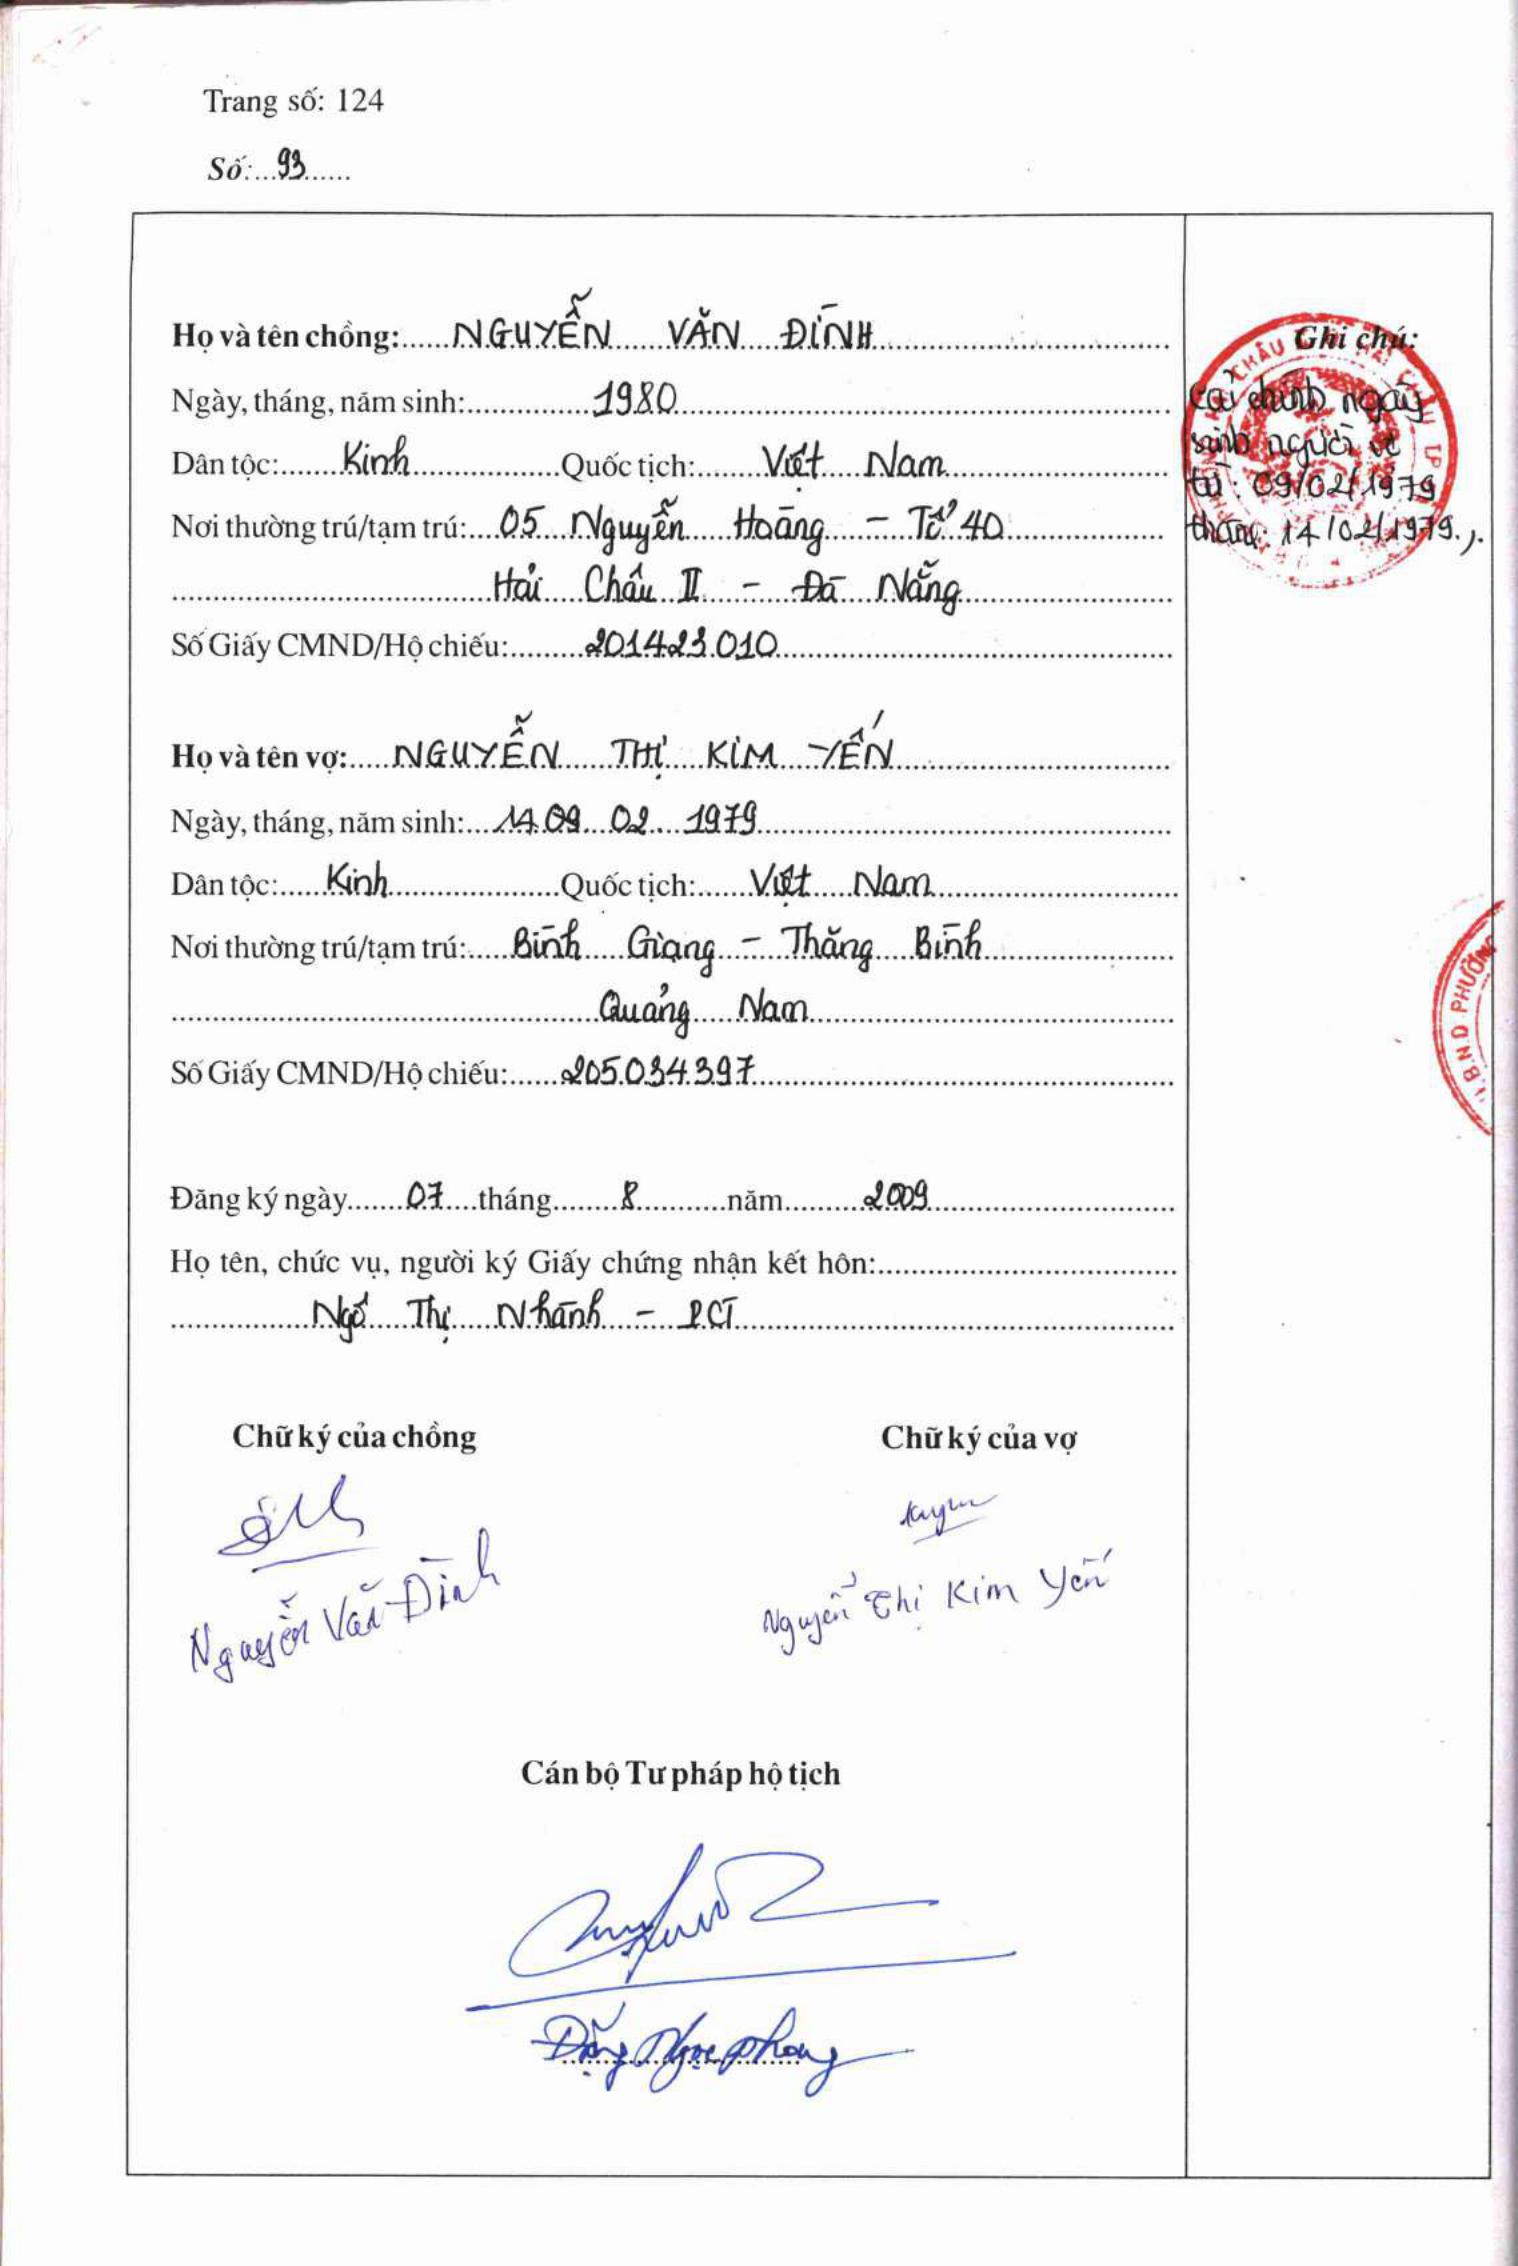 Trang số: 124
Số: 93
Họ và tên chồng: NGUYỄN VĂN ĐÌNH
Ngày, tháng, năm sinh: 1980
Dân tộc: Kinh Quốc tịch: Việt Nam
Nơi thường trú/tạm trú: 05 Nguyễn Hoàng - Tổ 40
Hải Châu II - Đà Nẵng
Số Giấy CMND/Hộ chiếu: 201423010
Họ và tên vợ: NGUYỄN THỊ KIM YẾN
Ngày, tháng, năm sinh: 14 09 02 1979
Dân tộc: Kinh Quốc tịch: Việt Nam
Nơi thường trú/tạm trú: Bình Giang - Thăng Bình
Quảng Nam
Số Giấy CMND/Hộ chiếu: 205034397
Đăng ký ngày 07 tháng 8 năm 2009
Họ tên, chức vụ, người ký Giấy chứng nhận kết hôn:
Ngô Thị Nhành - PCT
Chữ ký của chồng Chữ ký của vợ
Nguyễn Văn Đình
Nguyễn Thị Kim Yến
Cán bộ Tư pháp hộ tịch
Đặng Ngọc Phong
Ghi chú:
Cải chính ngày
sinh người vợ
từ: 09/02/1979
thành: 14/02/1979.
U.B.N.D PHƯỜNG